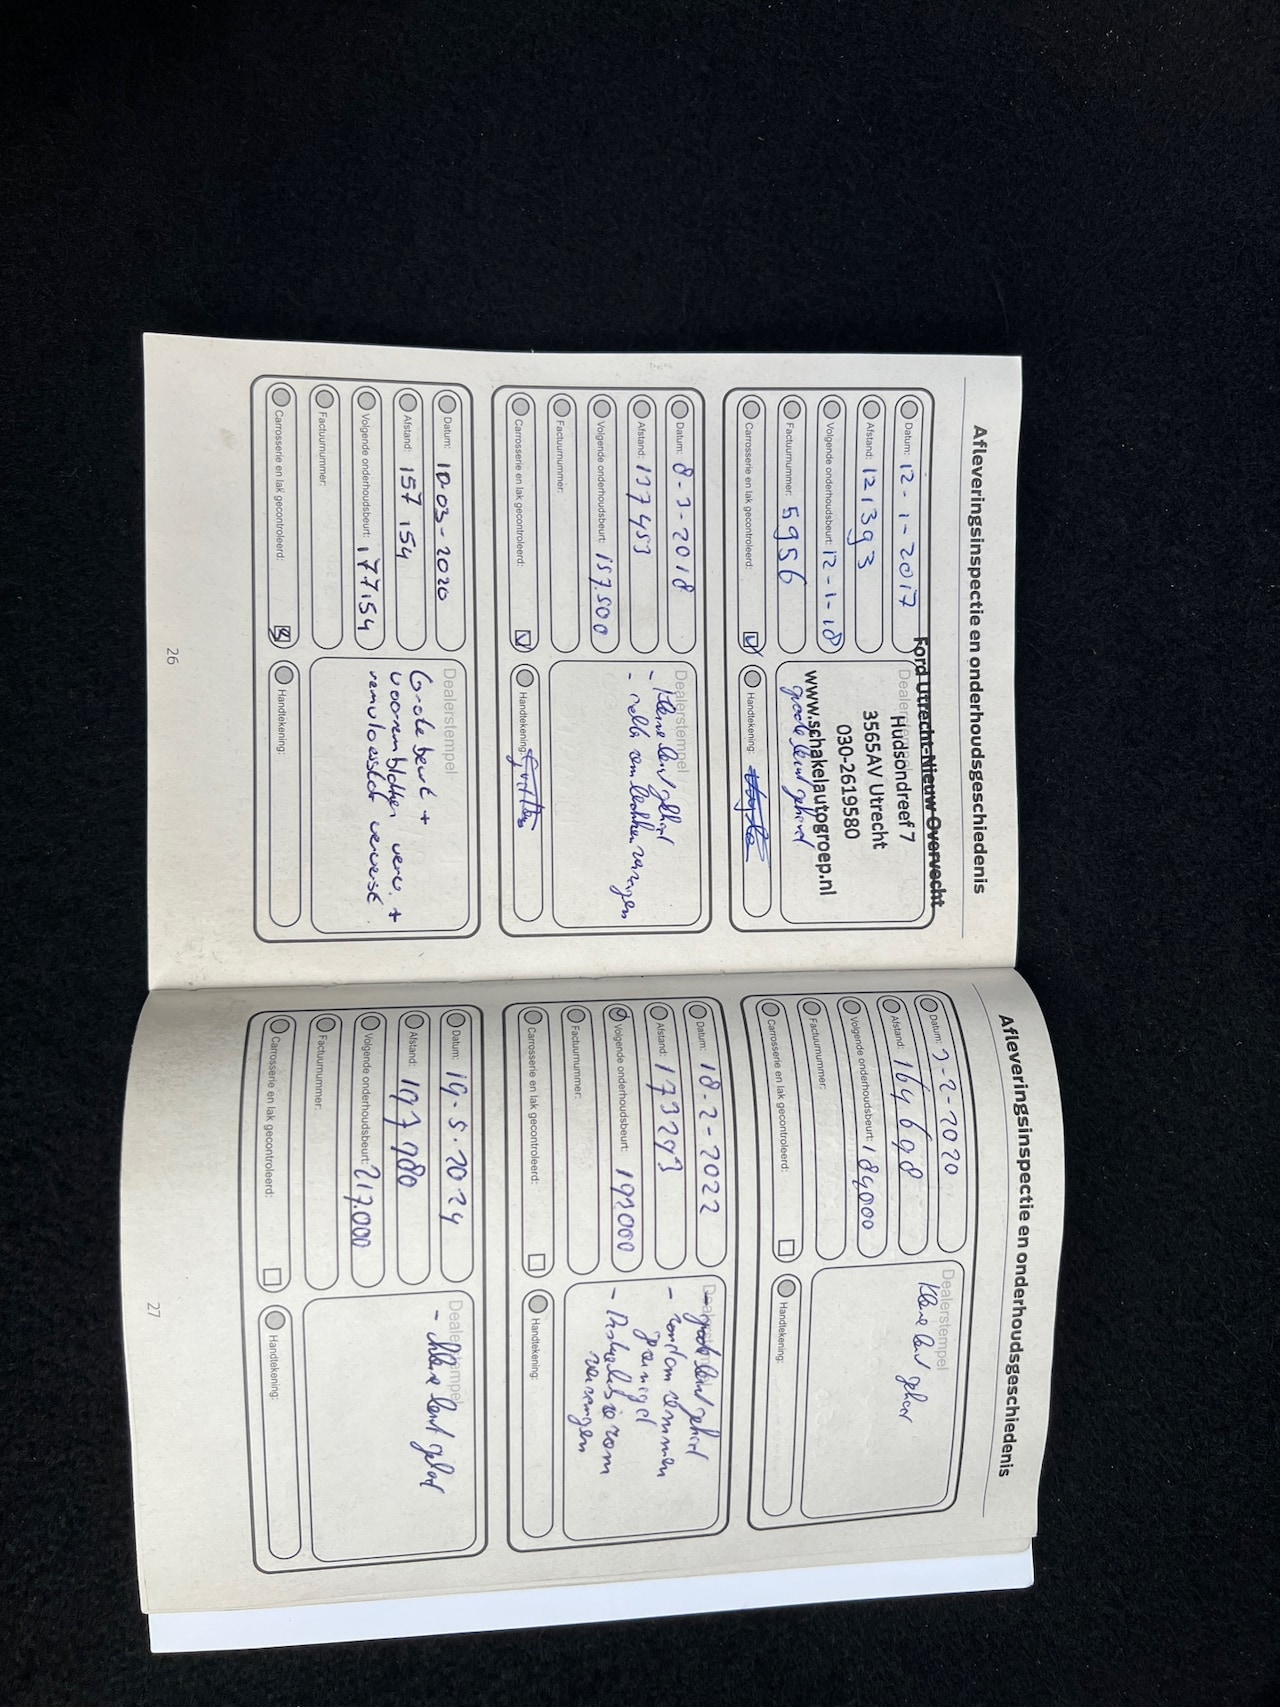 Afleveringsinspectie en onderhoudsgeschiedenis
Datum: 12-1-2017
Afstand: 121393
Volgende onderhoudsbeurt: 12-1-18
Factuurnummer: 5956
Carrosserie en lak gecontroleerd:
Ford Utrecht-Nieuw Overvecht
Hudsondreef 7
3565AV Utrecht
030-2619580
www.schakelautogroep.nl
grote beurt gehad
Handtekening:
Datum: 8-3-2018
Afstand: 137453
Volgende onderhoudsbeurt: 157.500
Factuurnummer:
Carrosserie en lak gecontroleerd:
Dealerstempel
- Kleine beurt gehad
- vervangen
Handtekening:
Datum: 10-03-2020
Afstand: 157154
Volgende onderhoudsbeurt: 177154
Factuurnummer:
Carrosserie en lak gecontroleerd:
Dealerstempel
Grote beurt +
voorremblokken verv. +
remvloeistof ververst.
Handtekening:
26
Afleveringsinspectie en onderhoudsgeschiedenis
Datum: 3-2-2020
Afstand: 164698
Volgende onderhoudsbeurt: 184000
Factuurnummer:
Carrosserie en lak gecontroleerd:
Dealerstempel
Kleine beurt gehad
Handtekening:
Datum: 18-2-2022
Afstand: 173293
Volgende onderhoudsbeurt: 193000
Factuurnummer:
Carrosserie en lak gecontroleerd:
Dealerstempel
- grote beurt gehad
- rondom remmen
gereinigd
vervangen
Handtekening:
Datum: 19-5-2024
Afstand: 197980
Volgende onderhoudsbeurt: 217.000
Factuurnummer:
Carrosserie en lak gecontroleerd:
Dealerstempel
- kleine beurt gehad
Handtekening:
27